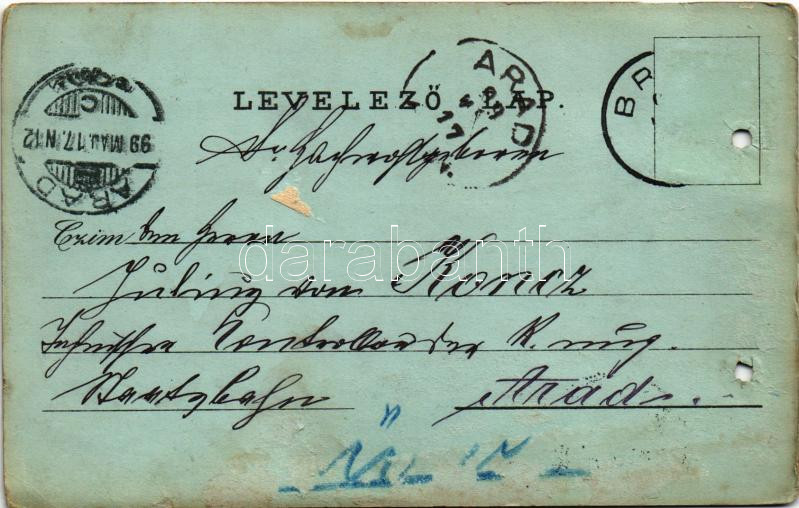 LEVELEZŐ LAP.
ARAD
99 MÁJ. 17. N 12
C
ARAD
BR
Sr. Hochwohlgeboren
Czim dem Herrn
Julius von Koncz
Technischer Controllor der K. ung.
Staatsbahn Arad.
darabanth